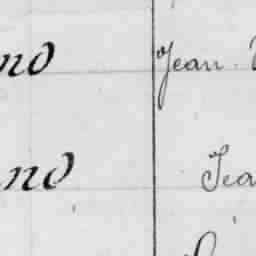 nd Jean
nd Jea